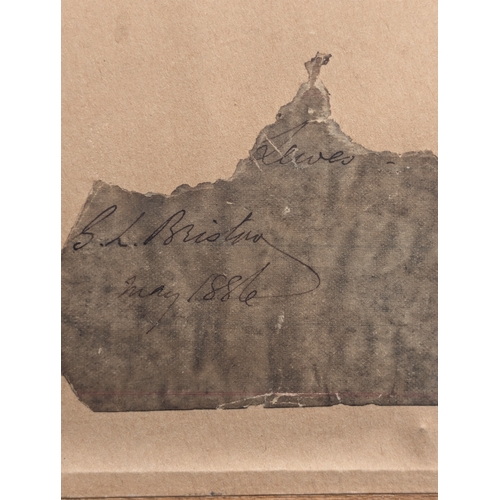 Lewes -
G. L. Bristow
May 1886